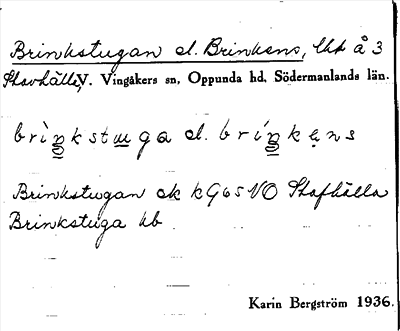 Brinkstugan el. Brinkens, lht å 3
Stavhälla, V. Vingåkers sn, Oppunda hd, Södermanlands län.
brìŋkstɯga el. bríŋkẹns
Brinkstugan ek kG65NO Stafhälla
Brinkstuga hb
Karin Bergström 1936.